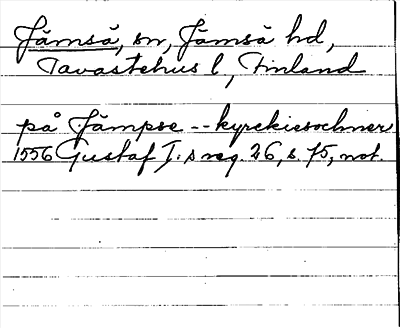 Jämsä, sn, Jämsä hd,
Tavastehus l, Finland
på Jämpse -- kyrckiesochner
1556 Gustaf I:s reg. 26, s. 75, not.